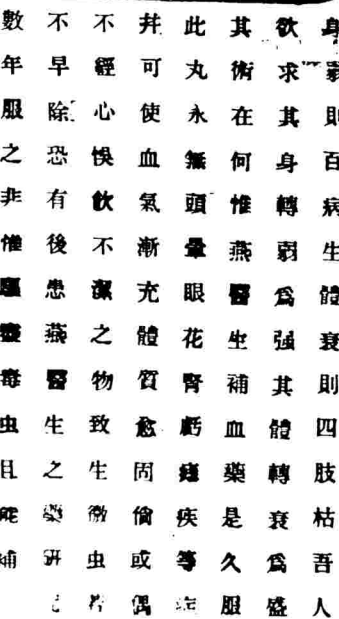 身弱則百病生體衰則四肢枯吾人
欲求其身轉弱為强其體轉衰為盛
其術在何惟燕醫生補血藥是久服
此丸永無頭暈眼花腎虧 疾等
并可使血氣漸充體質愈固倘或偶
不經心悞飲不潔之物致生微虫若
不早除恐有後患燕醫生之藥研
數年服之非惟驅 毒虫且能補